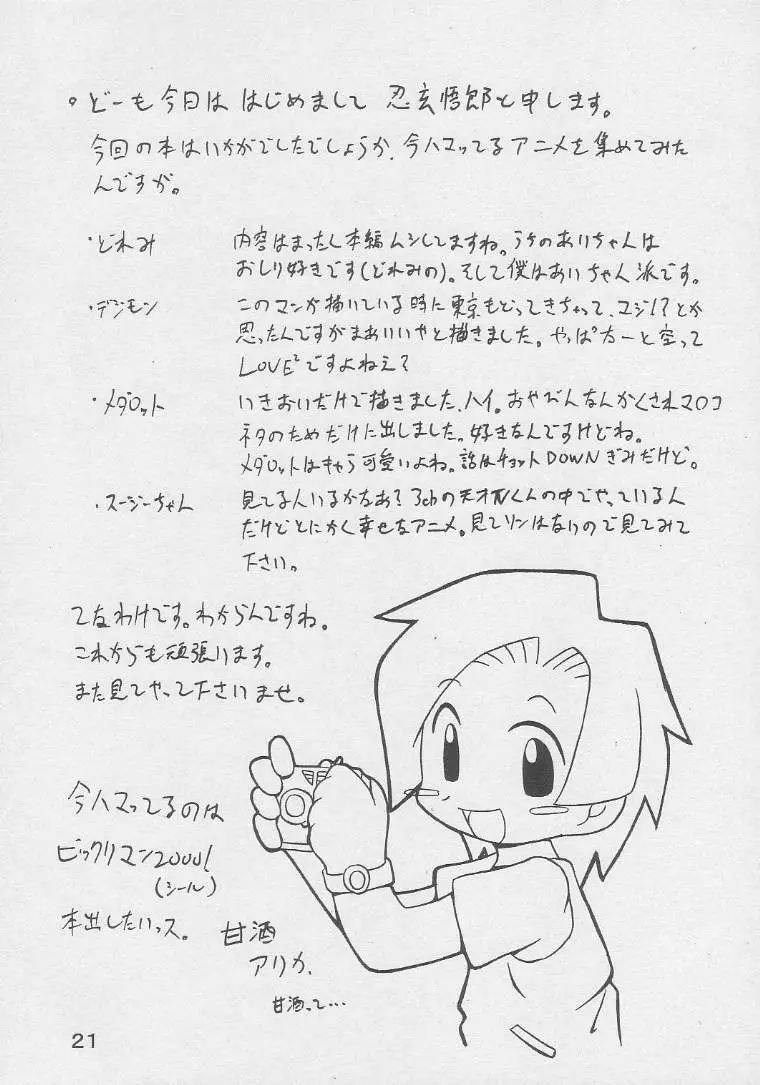 。どーも今日は はじめまして 忍玄悟郎と申します。
今回の本はいかがでしたでしょうか、今ハマッてるアニメを集めてみた
んですが。
・どれみ 内容はまったく本編ムシしてますね。うちのあいちゃんは
おしり好きです(どれみの)。そして僕はあいちゃん派です。
・デジモン このマンガ描いている時に東京もどってきちゃって、マジ!?とか
思ったんですがまあいいやと描きました。やっぱ太一と空って
LOVE²ですよねえ?
・メダロット いきおいだけで描きました、ハイ。おやびんなんかくされマロコ
ネタのためだけに出しました。好きなんですけどね。
メダロットはキャラ可愛いよね。話はチョットDOWNぎみだけど。
・スージーちゃん 見てる人いるかなあ?3chの天才くんの中でやっているん
だけどとにかく幸せなアニメ。見てソンはないので見てみて
下さい。
てなわけです。わからんですね。
これからも頑張います。
また見てやって下さいませ。
今ハマってるのは
ビックリマン2000!
(シール)
本出したいっス。
甘酒
アリカ、
甘酒って…
21